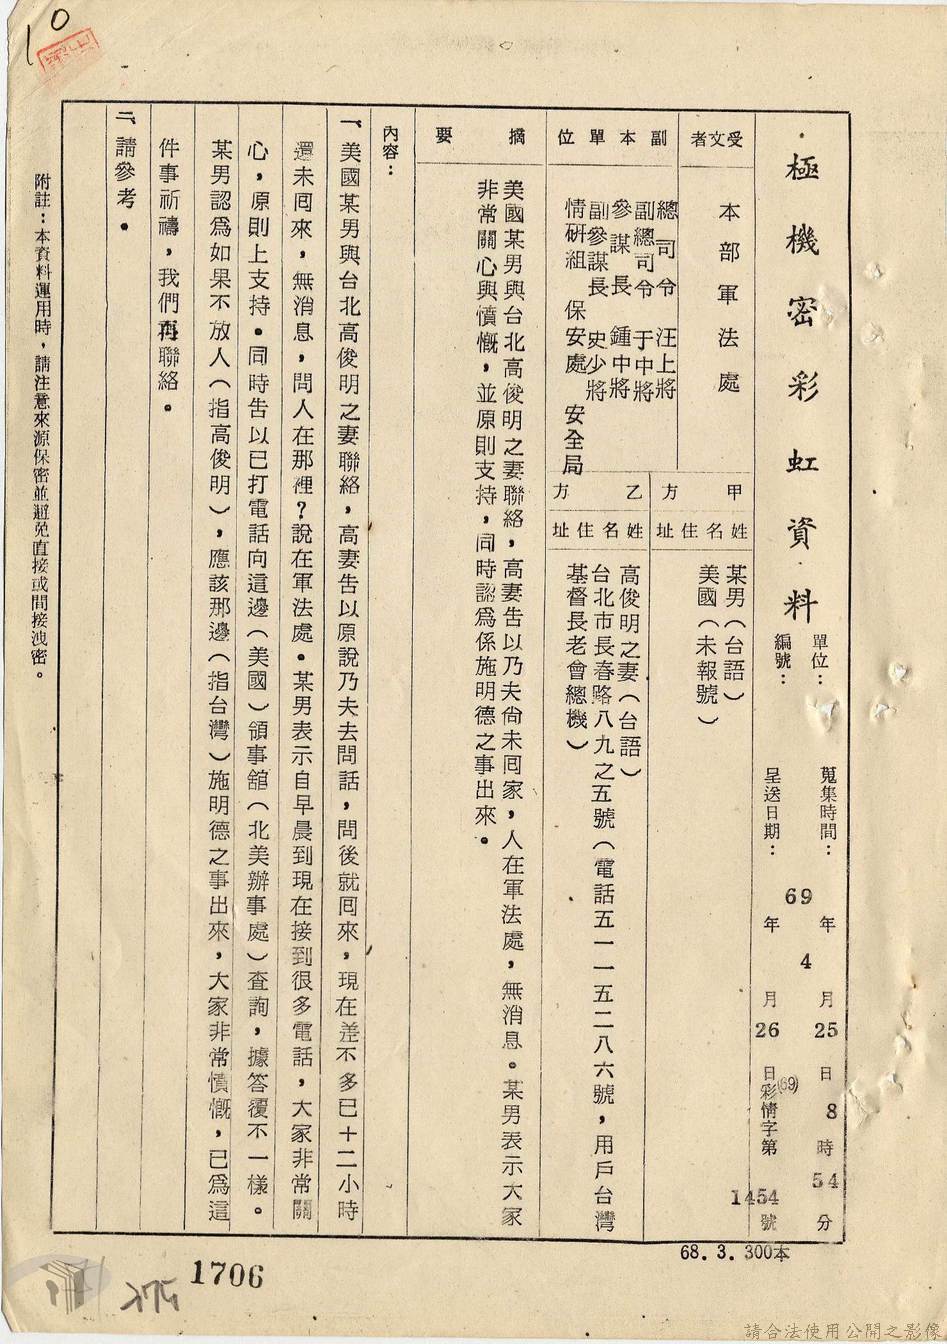 10
極機密彩虹資料
單位：
編號：
蒐集時間：69年4月25日8時54分
呈送日期：69年4月26日(69)彩情字第1454號
受文者
本部軍法處
副本單位
總司令 汪上將
副總司令 于中將
參謀長 鍾中將
副參謀長 史少將
情研組 保安處 安全局
甲方
姓名住址
某男（台語）
美國（未報號）
乙方
姓名住址
高俊明之妻（台語）
台北市長春路八九之五號（電話五一一五二八六號，用戶台灣
基督長老會總機）
摘要
美國某男與台北高俊明之妻聯絡，高妻告以乃夫尚未回家，人在軍法處，無消息。某男表示大家
非常關心與憤慨，並原則支持，同時認為係施明德之事出來。
內容：
一、美國某男與台北高俊明之妻聯絡，高妻告以原說乃夫去問話，問後就回來，現在差不多已十二小時
還未回來，無消息，問人在那裡？說在軍法處。某男表示自早晨到現在接到很多電話，大家非常關
心，原則上支持。同時告以已打電話向這邊（美國）領事舘（北美辦事處）查詢，據答覆不一樣。
某男認爲如果不放人（指高俊明），應該那邊（指台灣）施明德之事出來，大家非常憤慨，已爲這
件事祈禱，我們再聯絡。
二、請參考。
附註：本資料運用時，請注意來源保密並避免直接或間接洩密。
68.3.300本
1706
275
請合法使用公開之影像